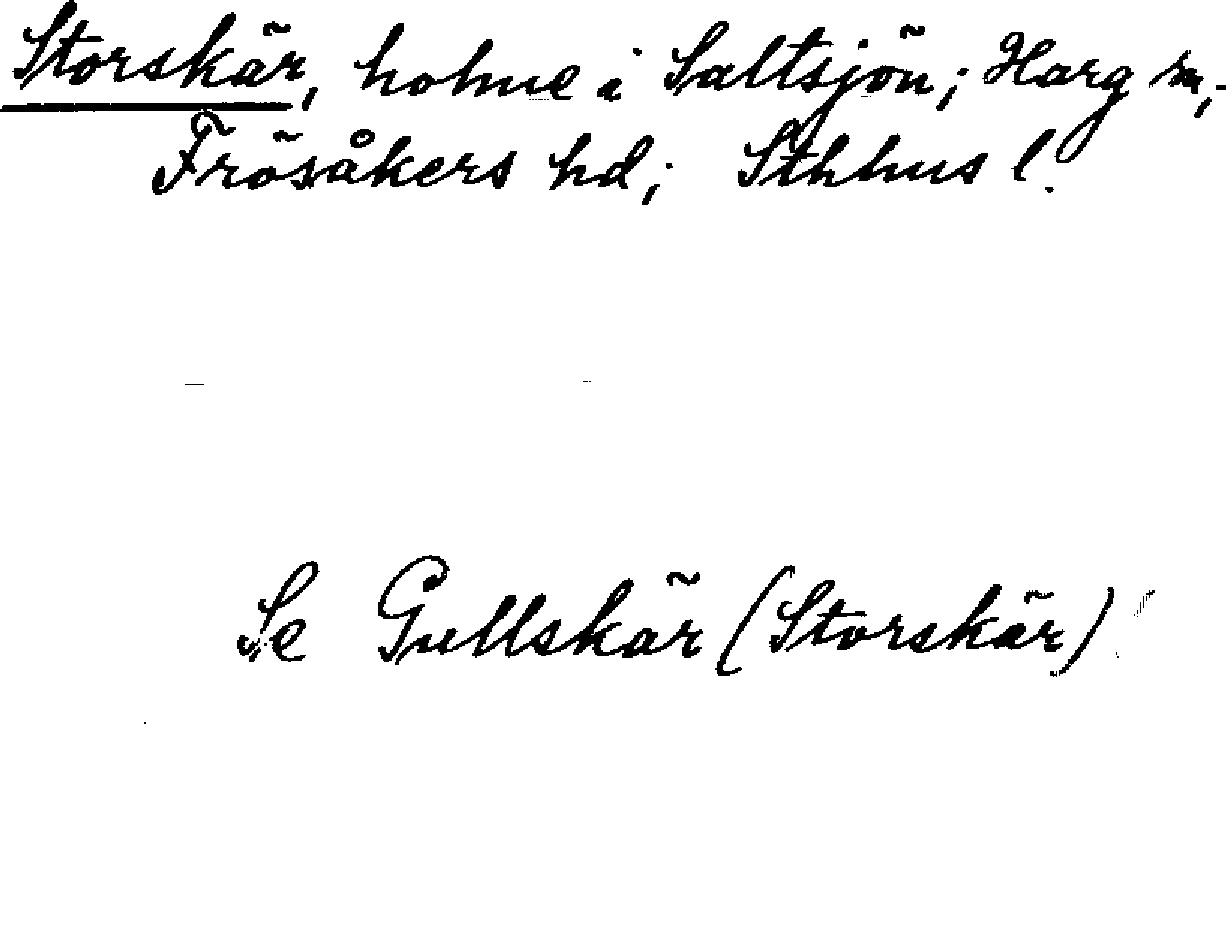 Storskär, holme i Saltsjön; Harg sn,
Frösåkers hd; Sthlms l.
Se Gullskär (Storskär)